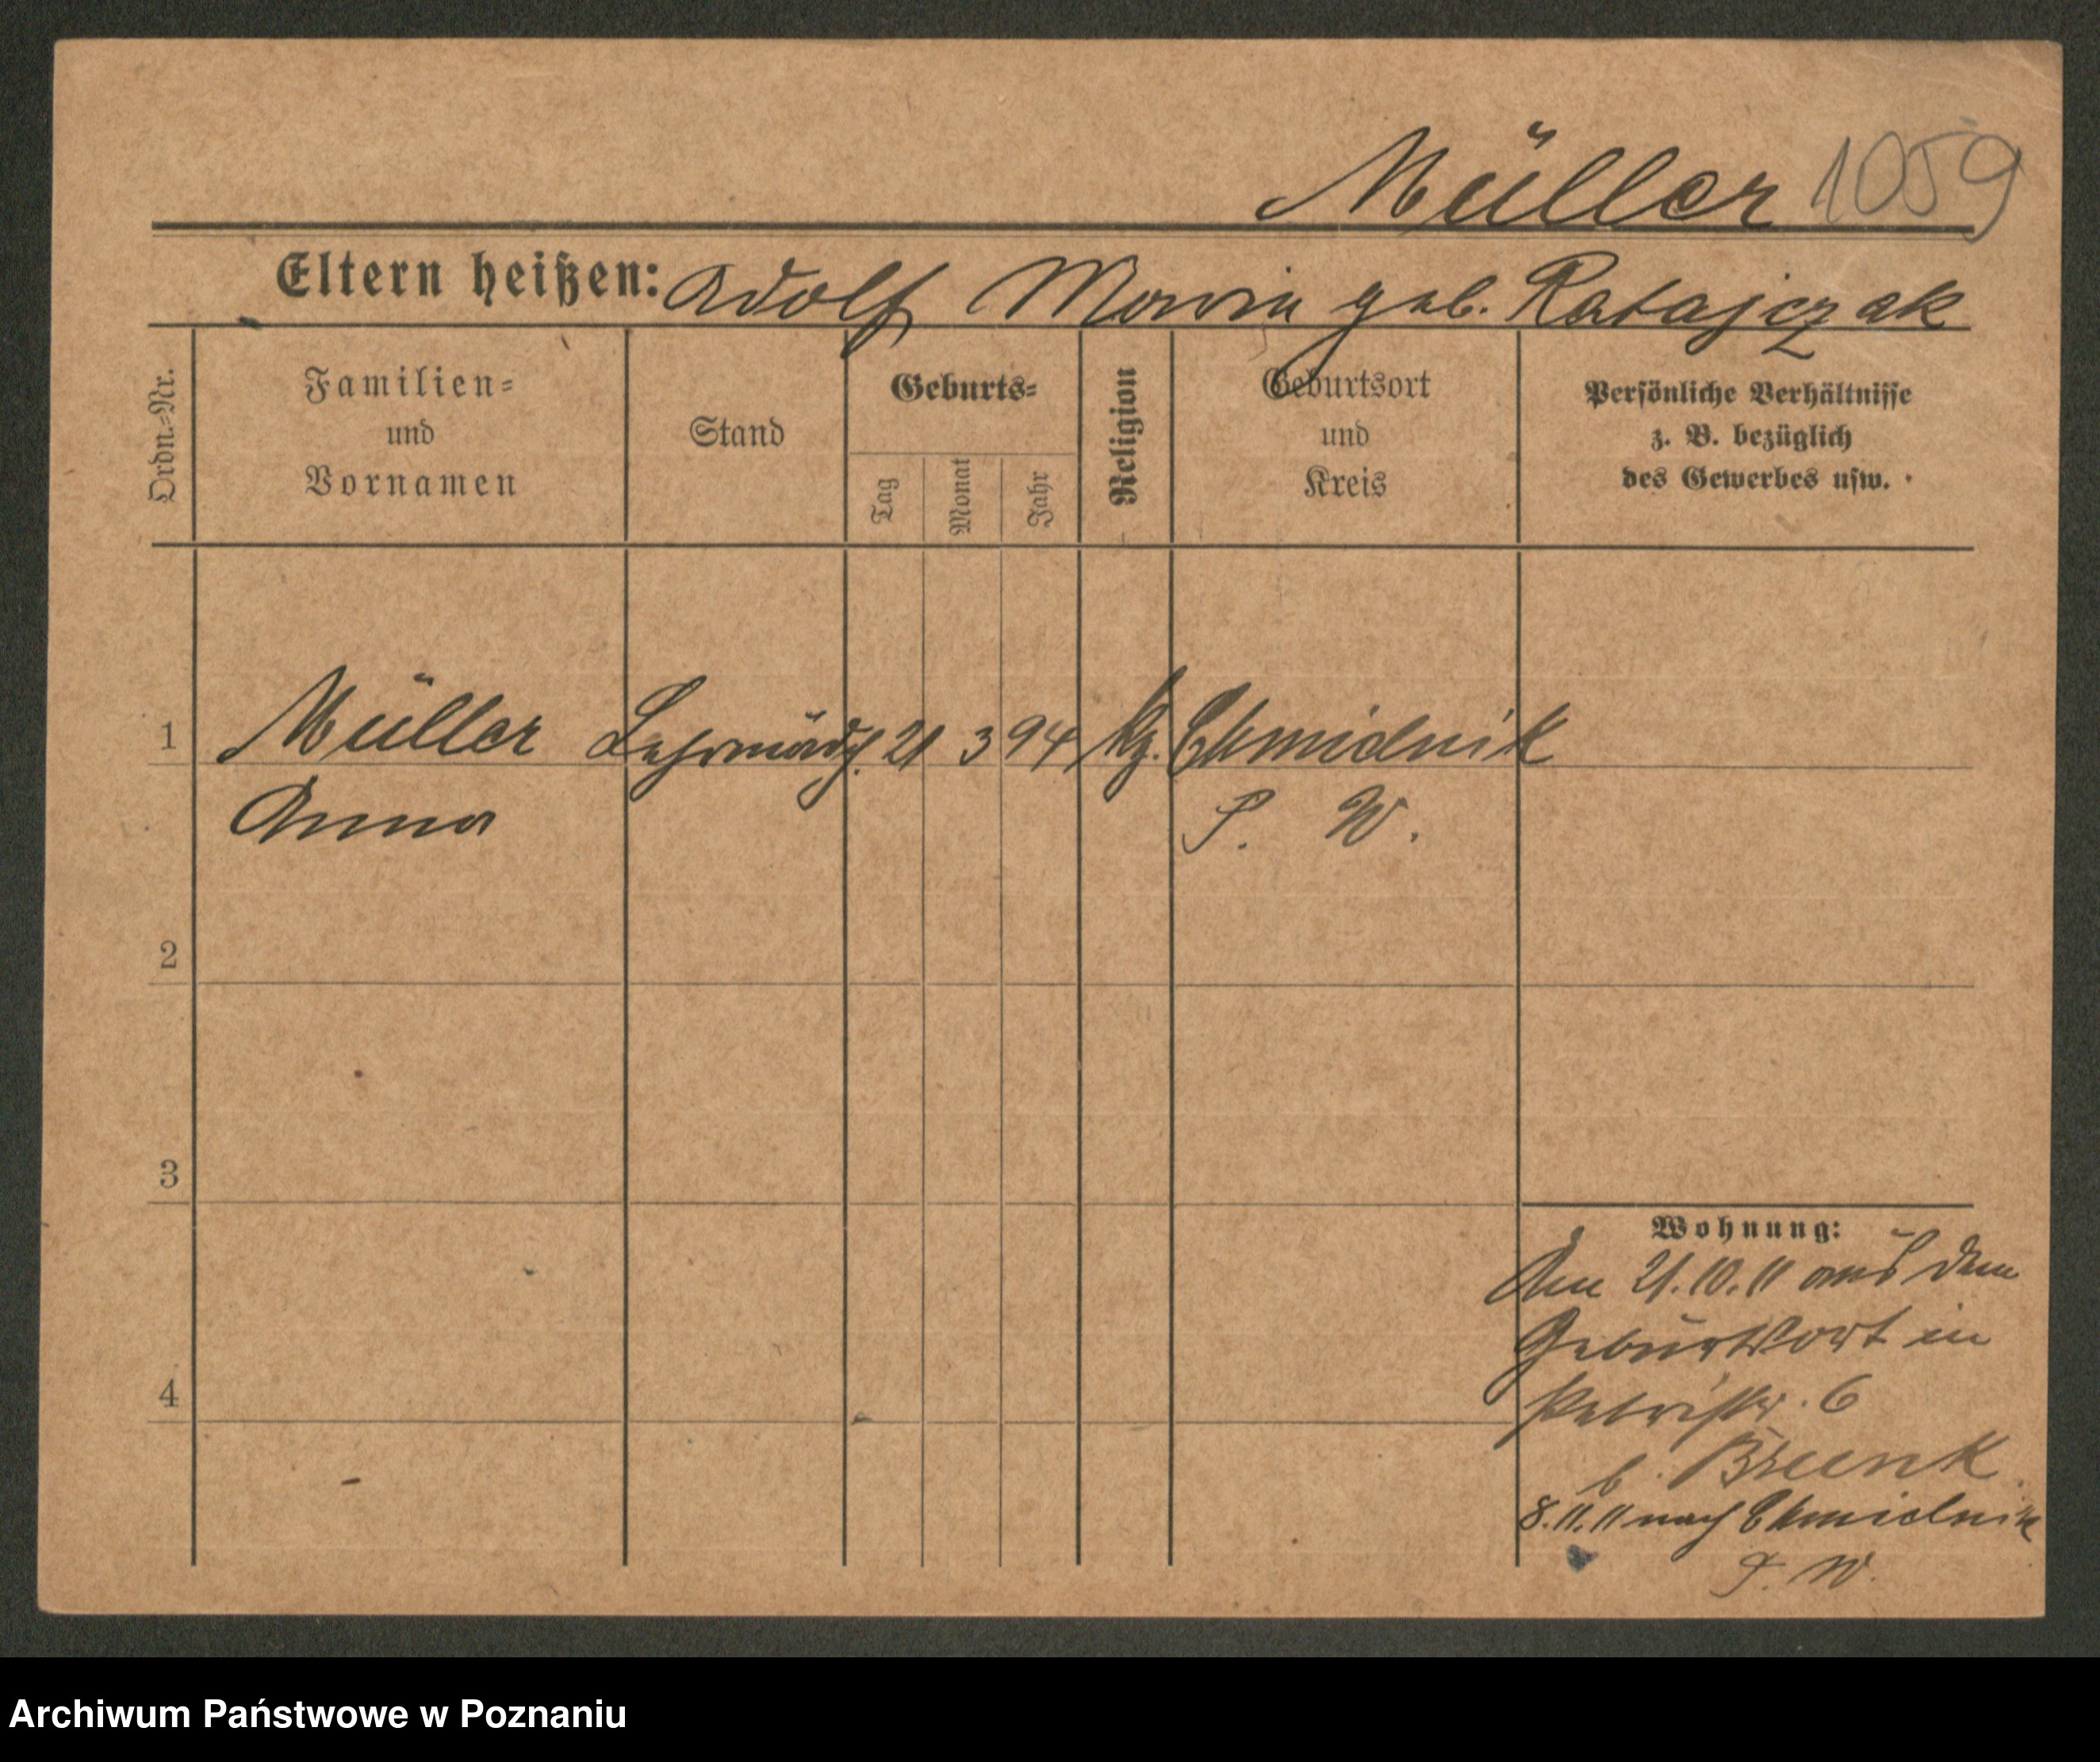 Müller 1059
Eltern heißen: Adolf Maria geb. Ratajczak
Ordn.=Nr.
Familien=
und
Vornamen
Stand
Geburts=
Tag
Monat
Jahr
Religion
Geburtsort
und
Kreis
Persönliche Verhältnisse
z. B. bezüglich
des Gewerbes usw.
1 Müller Lehrmädch. 21 3 94 Chmielnik
Anna P. W.
2
3
4
Wohnung:
Am 21.10.11 aus dem
Geburtsort in
Petristr. 6
b. Brunk
8.11.11 nach Chmielnik
P. W.
Archiwum Państwowe w Poznaniu